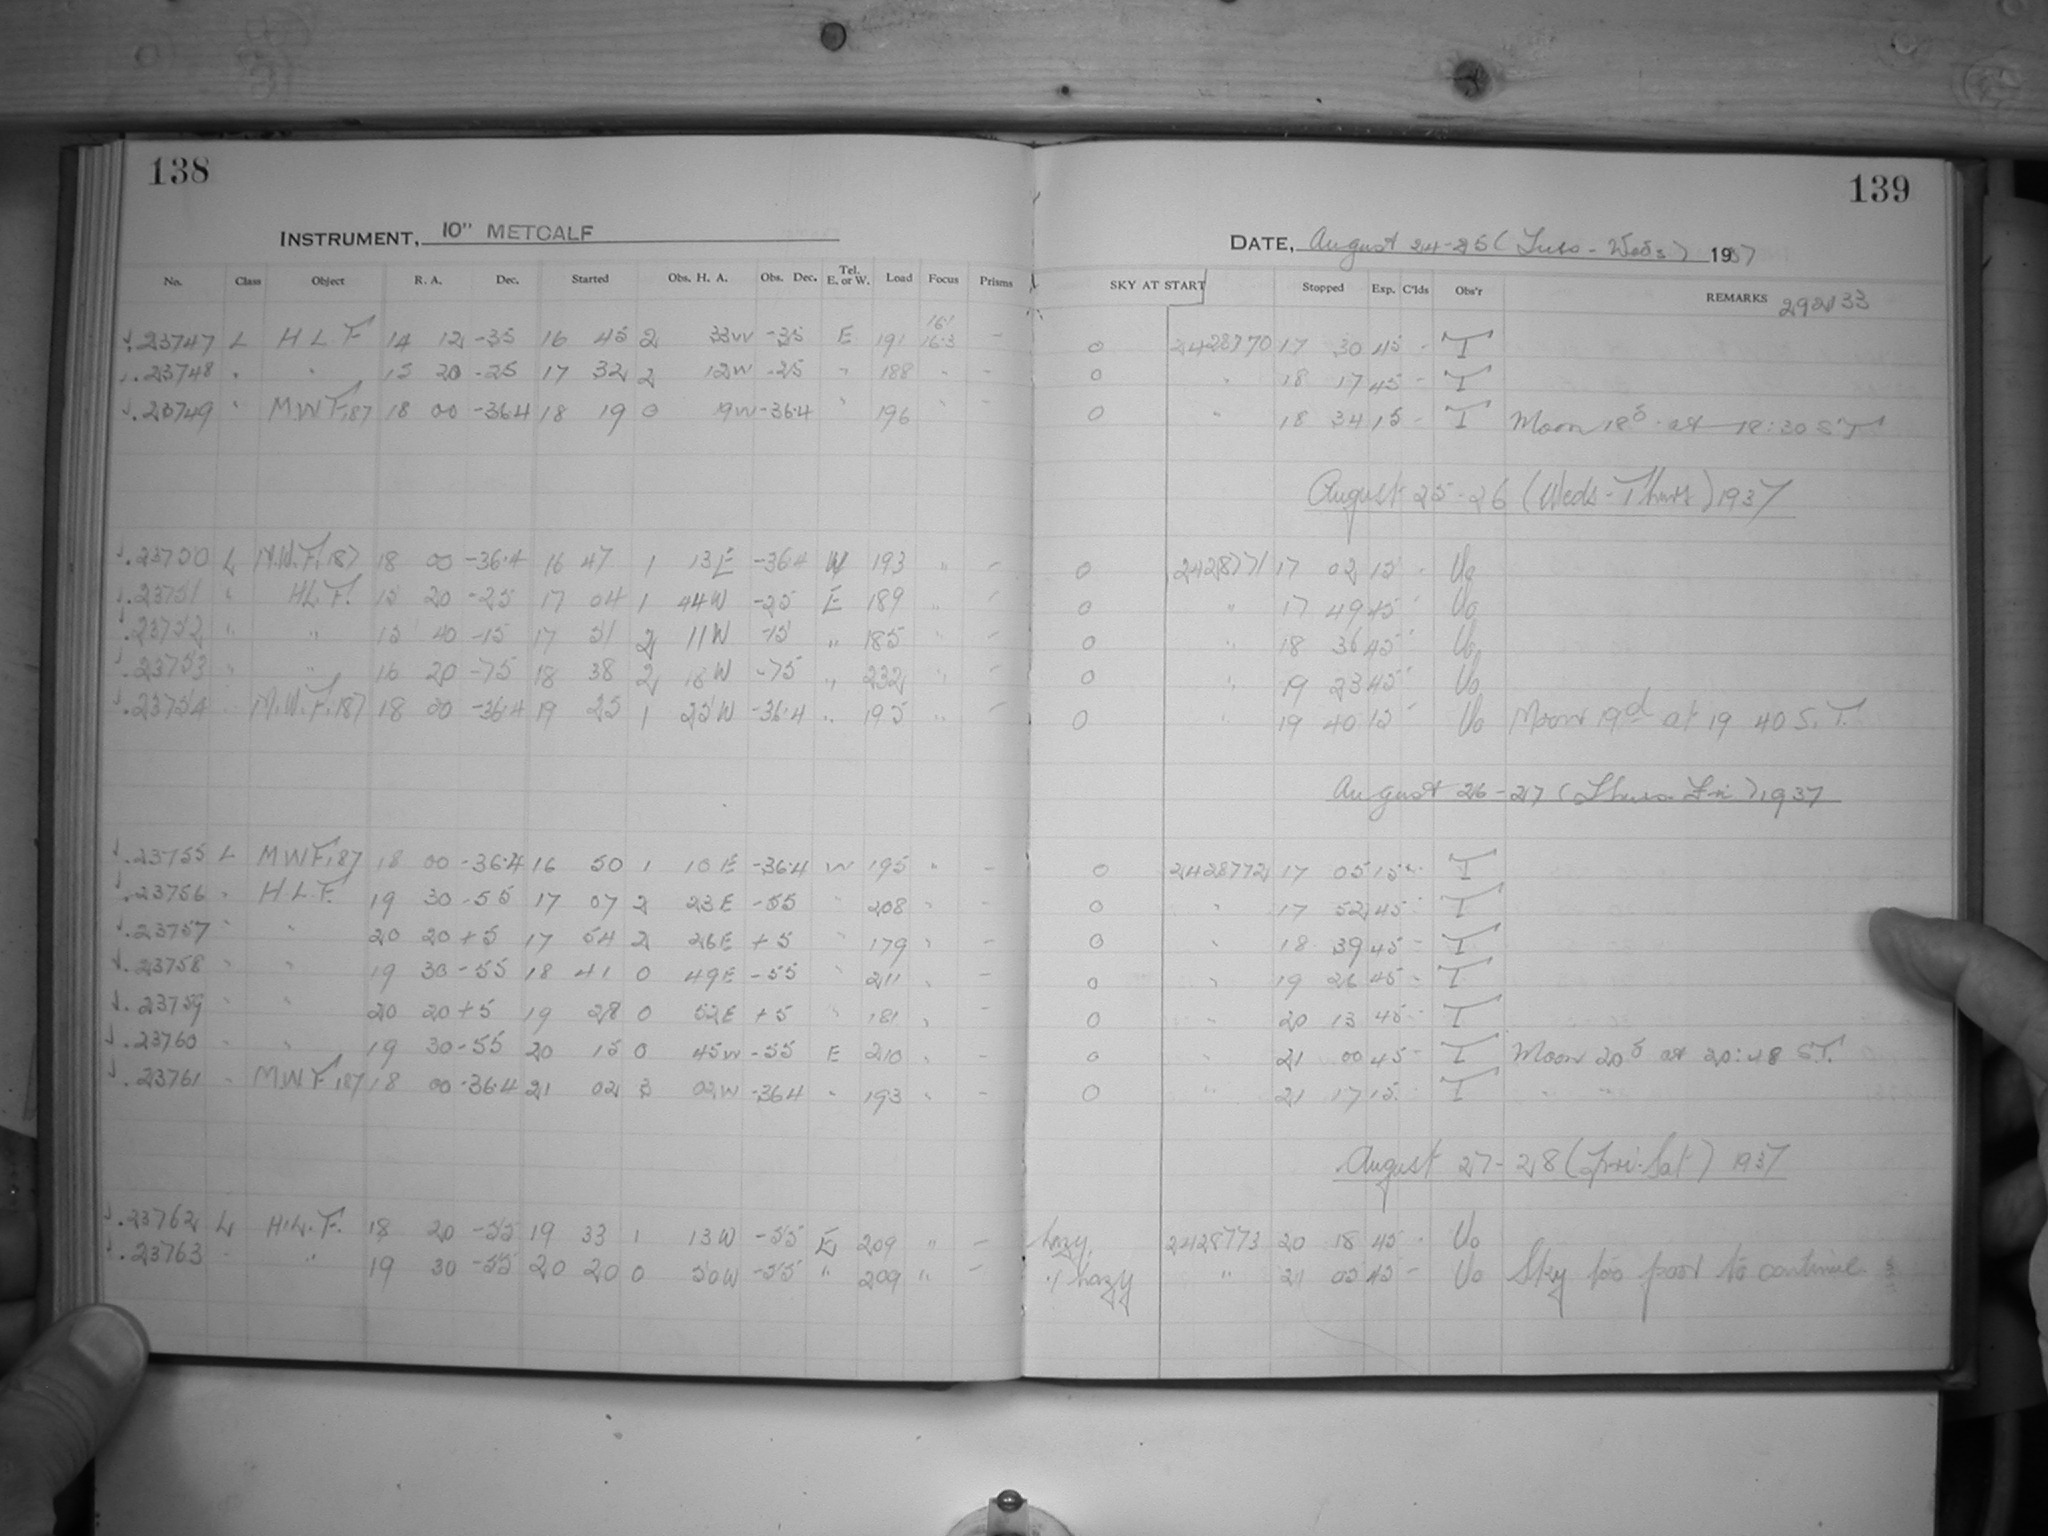 138
INSTRUMENT, 10" METCALF
No. Class Object R. A. Dec. Started Obs. H. A. Obs. Dec. Tel. E. or W. Load Focus Prisms
.23747 L H L F 14 12 -35 16 45 2 33W -35 E 191 16.1 16.3 -
.23748 " " 15 20 -25 17 32 2 12W -25 " 188 " -
.23749 " M.W.F.187 18 00 -36.4 18 19 0 19W -36.4 " 196 " -
.23750 L M.W.F.187 18 00 -36.4 16 47 1 13E -36.4 W 193 " -
.23751 " H.L.F. 15 20 -25 17 04 1 44W -25 E 189 " -
.23752 " " 15 40 -15 17 51 2 11W -15 " 185 " -
.23753 " " 16 20 -75 18 38 2 18W -75 " 232 " -
.23754 " M.W.F.187 18 00 -36.4 19 25 1 25W -36.4 " 195 " -
.23755 L MWF.187 18 00 -36.4 16 50 1 10E -36.4 W 195 " -
.23756 " H.L.F. 19 30 -55 17 07 2 23E -55 " 208 " -
.23757 " " 20 20 +5 17 54 2 26E +5 " 179 " -
.23758 " " 19 30 -55 18 41 0 49E -55 " 211 "
.23759 " " 20 20 +5 19 28 0 52E +5 " 181 " -
.23760 " " 19 30 -55 20 15 0 45W -55 E 210 " -
.23761 " MWF.187 18 00 -36.4 21 02 3 02W -36.4 " 193 " -
.23762 L H.L.F. 18 20 -55 19 33 1 13W -55 E 209 " -
.23763 " " 19 30 -55 20 20 0 50W -55 " 209 " -
139
DATE, August 24-25 (Tues - Weds) 1937
SKY AT START Stopped Exp. C'lds Obs'r REMARKS 292133
0 2428770 17 30 45 - T
0 " 18 17 45 - T
0 " 18 34 15 - T Moon 18d at 18:30 S.T.
August 25-26 (Weds-Thurs) 1937
0 2428771 17 02 15 - Uo
0 " 17 49 45 Uo
0 " 18 36 45 Uo
0 " 19 23 45 Uo
0 " 19 40 15 Uo Moon 19d at 19 40 S.T.
August 26-27 (Thurs-Fri) 1937
0 2428772 17 05 15 - T
0 " 17 52 45 - T
0 " 18 39 45 - T
0 " 19 26 45 - T
0 " 20 13 45 - T
0 " 21 00 45 - T Moon 20d at 20:48 S.T.
0 " 21 17 15 - T " "
August 27-28 (Fri-Sat) 1937
hazy 2428773 20 18 45 - Uo
hazy " 21 05 45 - Uo Sky too poor to continue.